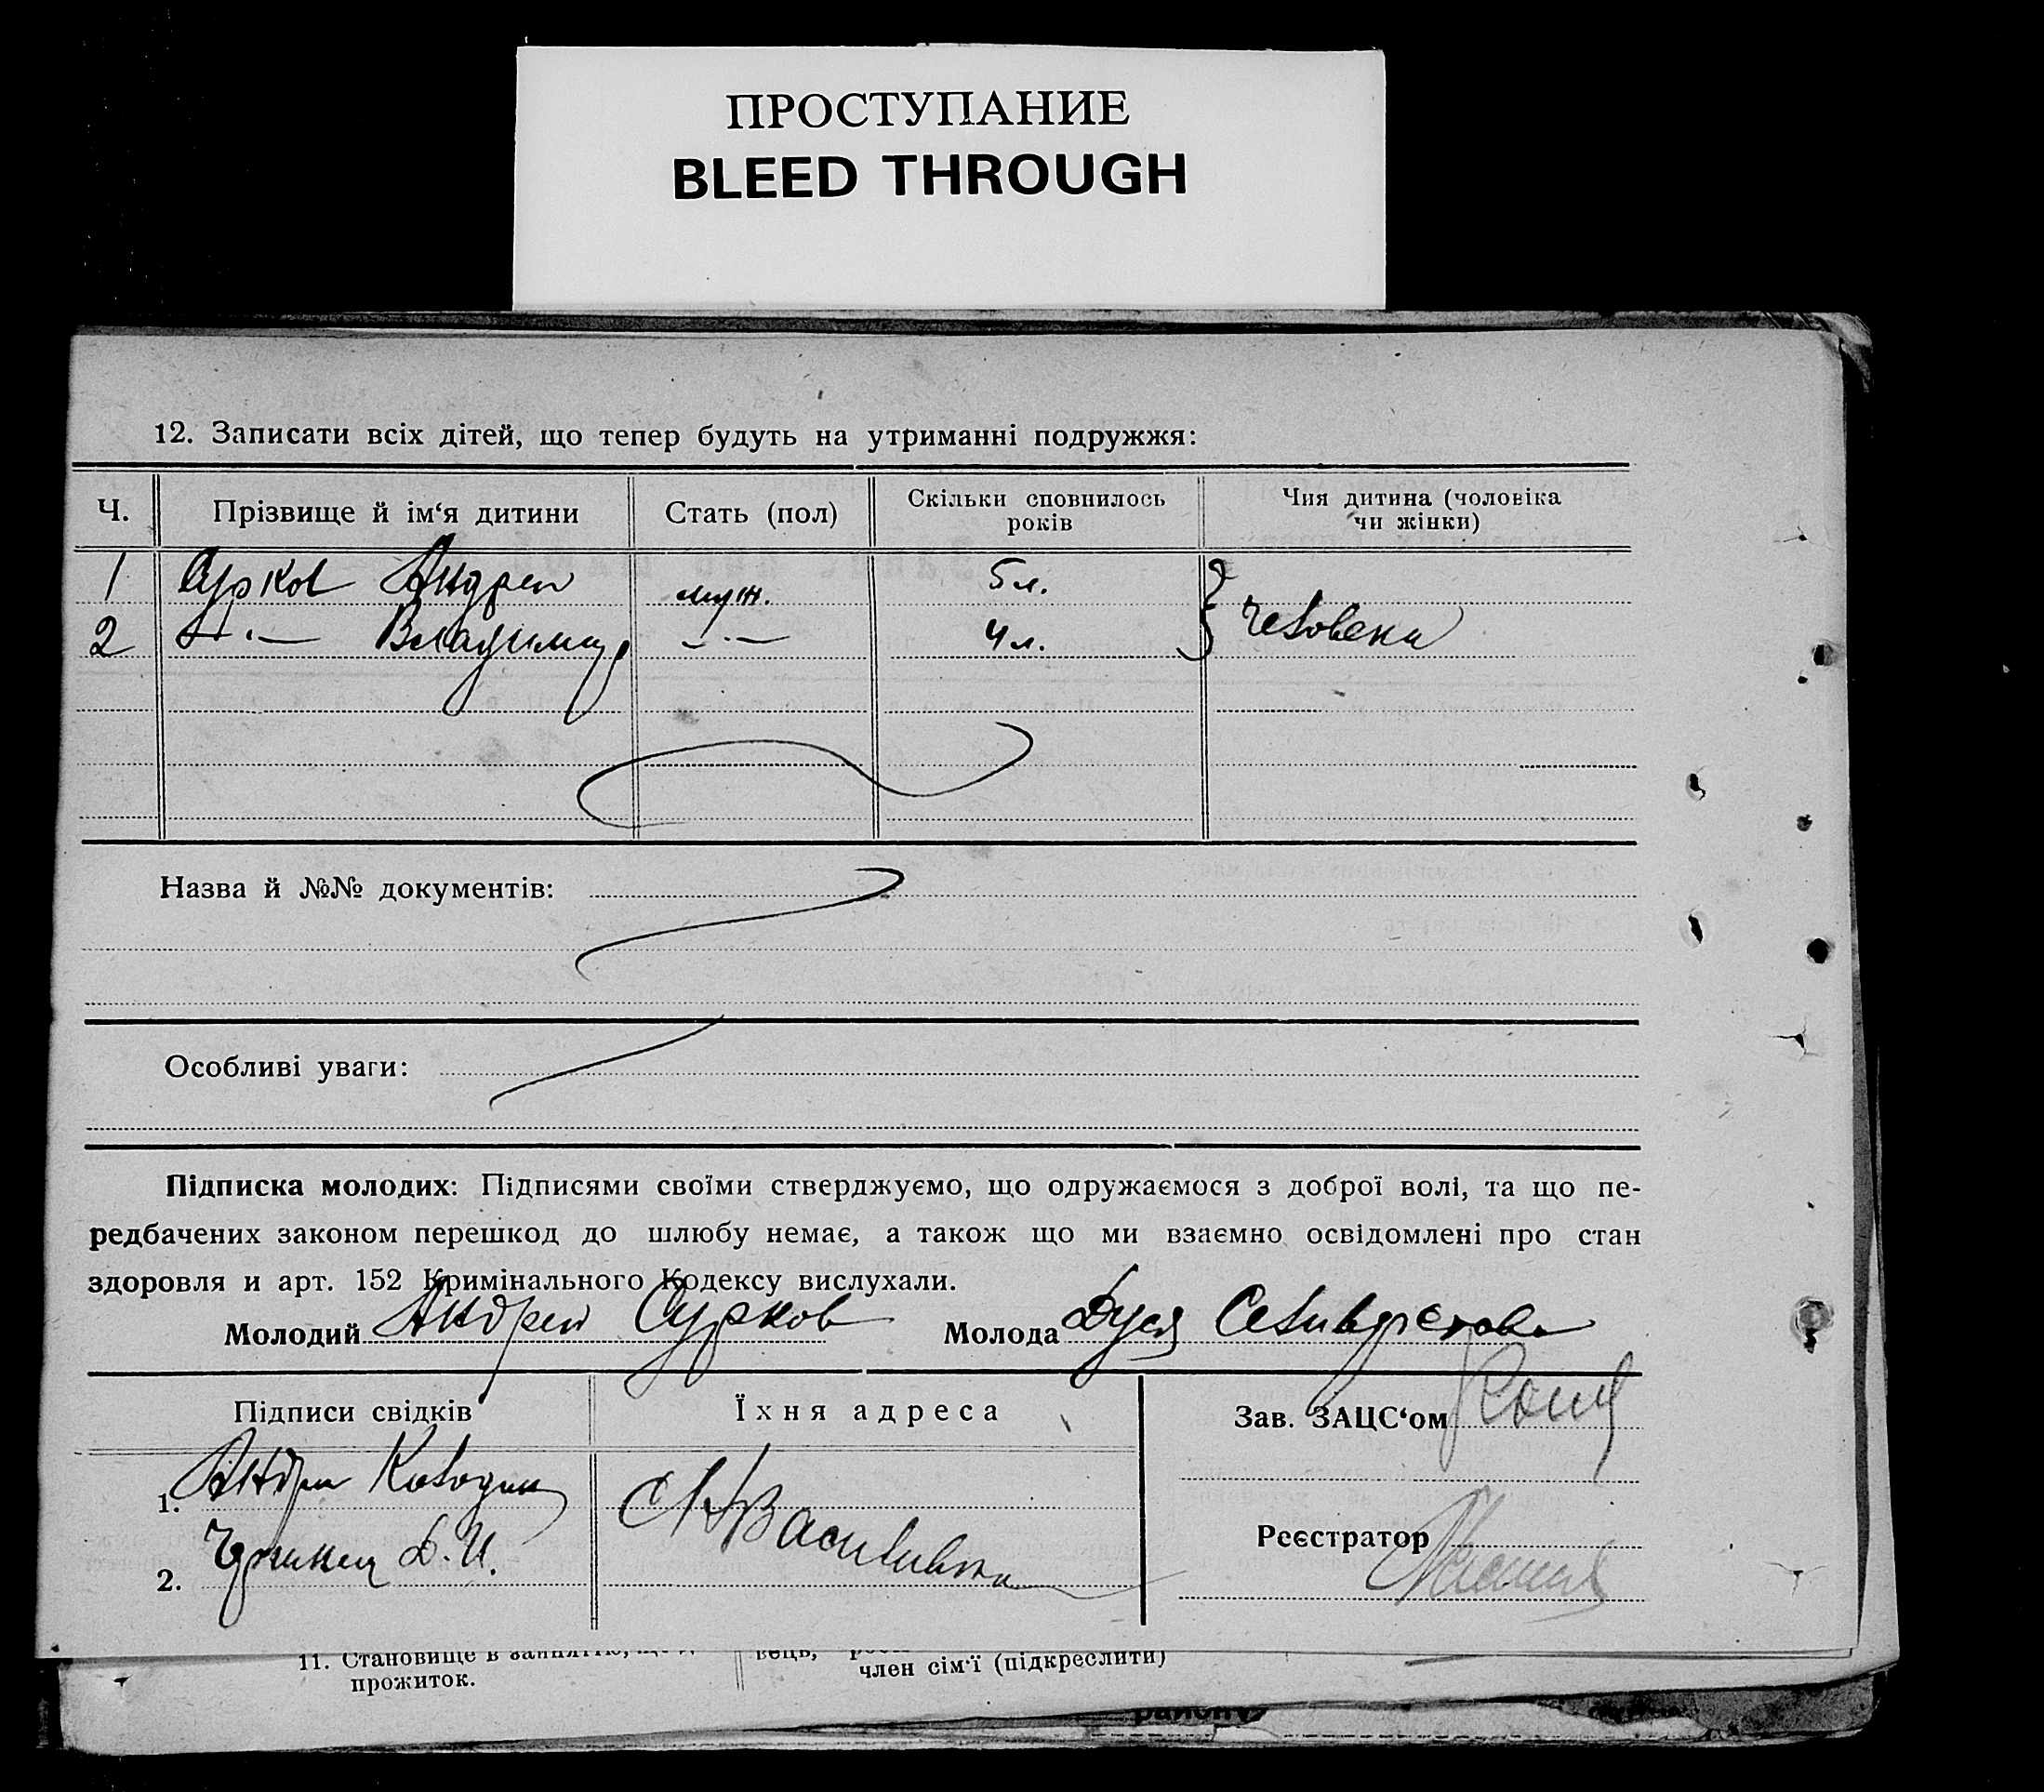 ПРОСТУПАНИЕ
BLEED THROUGH
12. Записати всіх дітей, що тепер будуть на утриманні подружжя:
Ч. Прізвище й ім‘я дитини Стать (пол) Скільки сповнилось років Чия дитина (чоловіка чи жінки)
1 Сурков Андрей муж. 5 л.
2 —"— Владимир —"— 4 л.
Назва й №№ документів:
Особливі уваги:
Підписка молодих: Підписями своїми стверджуємо, що одружаємося з доброї волі, та що пе-
редбачених законом перешкод до шлюбу немає, а також що ми взаємно освідомлені про стан
здоровля и арт. 152 Кримінального Кодексу вислухали.
Молодий Андрей Сурков Молода Дуся
Підписи свідків Їхня адреса Зав. ЗАЦС‘ом
1. Андрей
2. Д. И.
Реєстратор
11. Становище в
прожиток.
член сім‘ї (підкреслити)